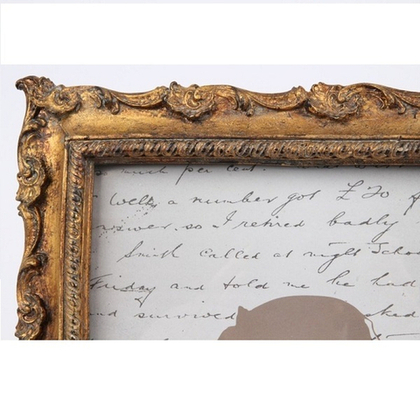 much per cent.
Well, a number got £20 f
so I retired badly
Smith called at night School
Friday and told me he had
and survived oked